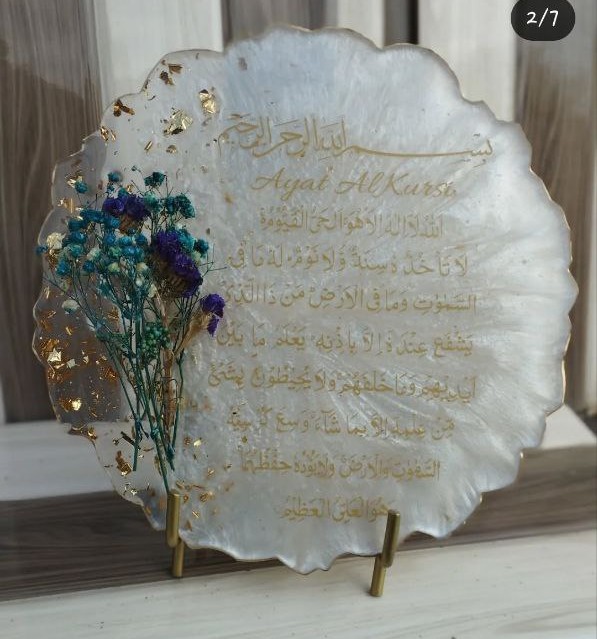 2/7
بسم الله الرحمن الرحيم
Ayat Al Kursi
الله لا اله الا هو الحي القيوم
لا تأخذه سنة ولا نوم له ما في
السموت وما في الارض من ذا الذي
يشفع عنده الا باذنه يعلم ما بين
ايديهم وما خلفهم ولا يحيطون بشئ
من علمه الا بما شاء وسع كرسيه
السموت والارض ولا يؤده حفظهما
وهو العلي العظيم